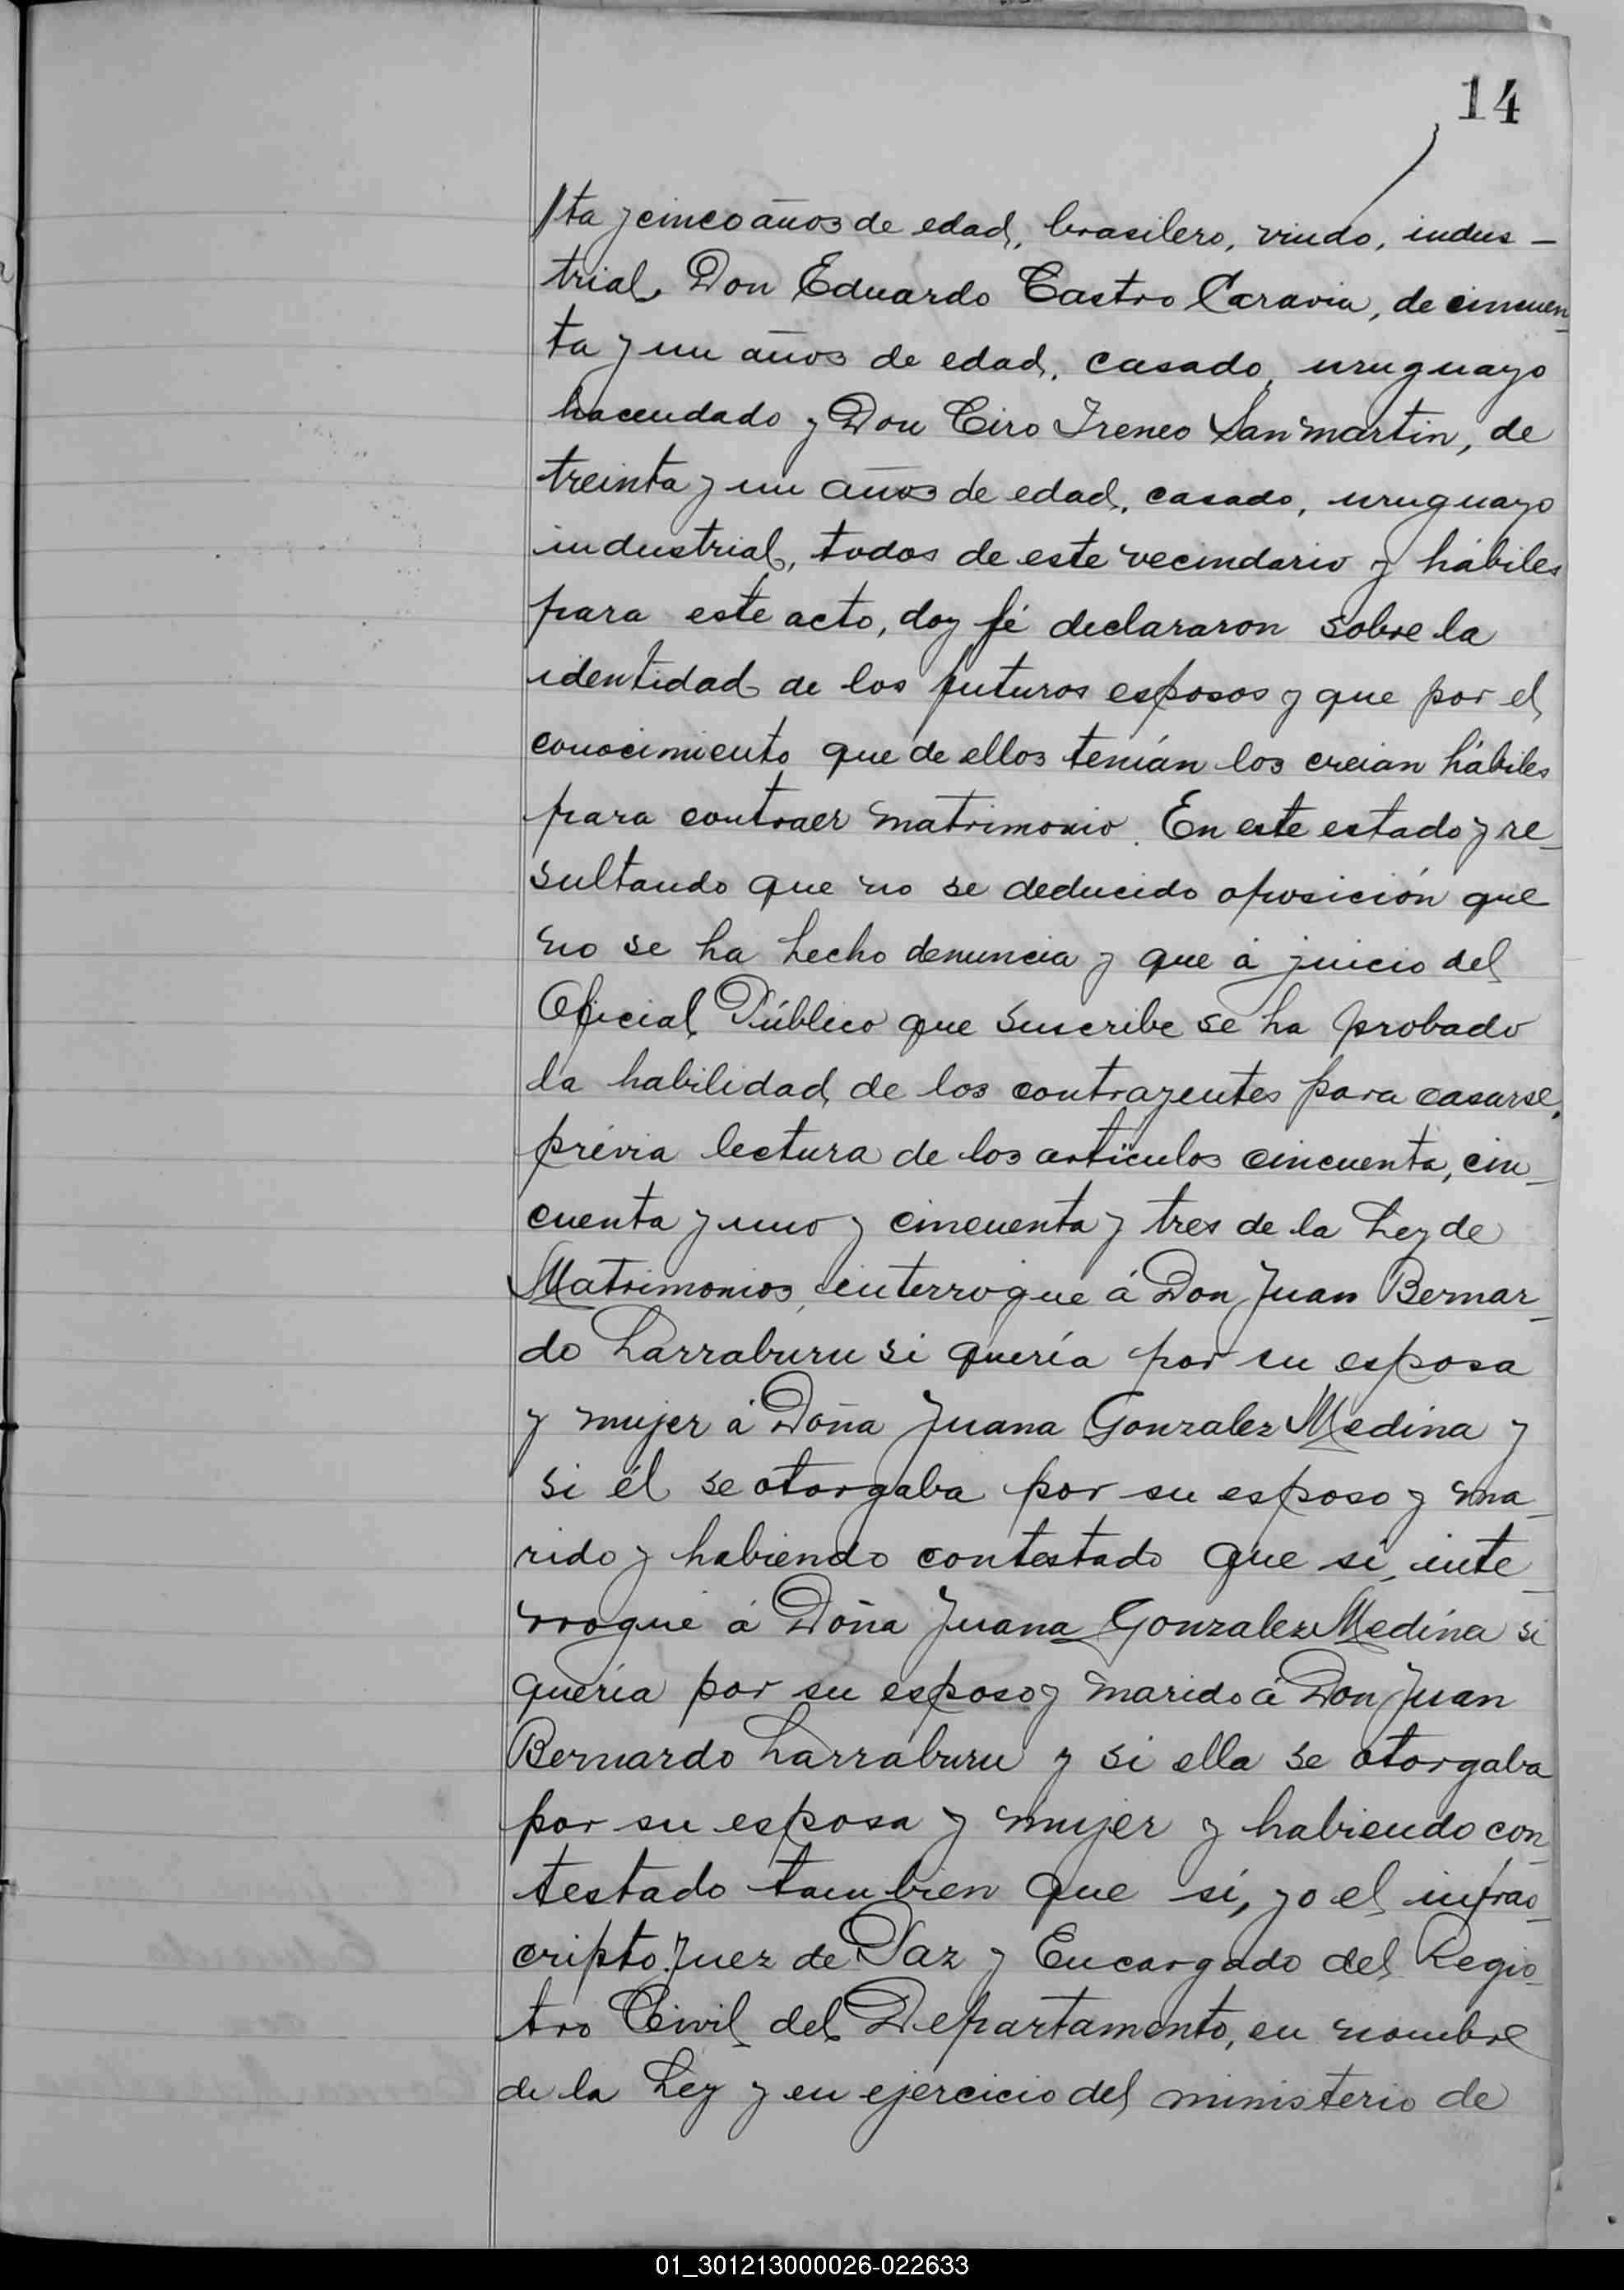 14
ta y cinco años de edad, brasilero, viudo, indus-
trial, Don Eduardo Castro Caravia, de cincuen-
ta y un años de edad, casado, uruguayo
hacendado y Don Ciro Ireneo Sanmartin, de
treinta y un años de edad, casado, uruguayo
industrial, todos de este vecindario y hábiles
para este acto, doy fé declararon sobre la
identidad de los futuros esposos y que por el
conocimiento que de ellos tenían los creian hábiles
para contraer matrimonio. En este estado y re-
sultando que no se deducido oposición que
no se ha hecho denuncia y que á juicio del
Oficial Público que suscribe se ha probado
la habilidad de los contrayentes para casarse,
prévia lectura de los artículos cincuenta, cin-
cuenta y uno y cincuenta y tres de la Ley de
Matrimonios, interrogué á Don Juan Bernar-
do Larraburu si quería por su esposa
y mujer á Doña Juana Gonzalez Medina y
si él se otorgaba por su esposo y ma-
rido y habiendo contestado que sí, inte-
rrogué á Doña Juana Gonzalez Medina si
quería por su esposo y marido á Don Juan
Bernardo Larraburu y si ella se otorgaba
por su esposa y mujer y habiendo con-
testado tambien que sí, yo el infras-
cripto Juez de Paz y Encargado del Regis-
tro Civil del Departamento, en nombre
de la Ley y en ejercicio del ministerio de
01_301213000026-022633